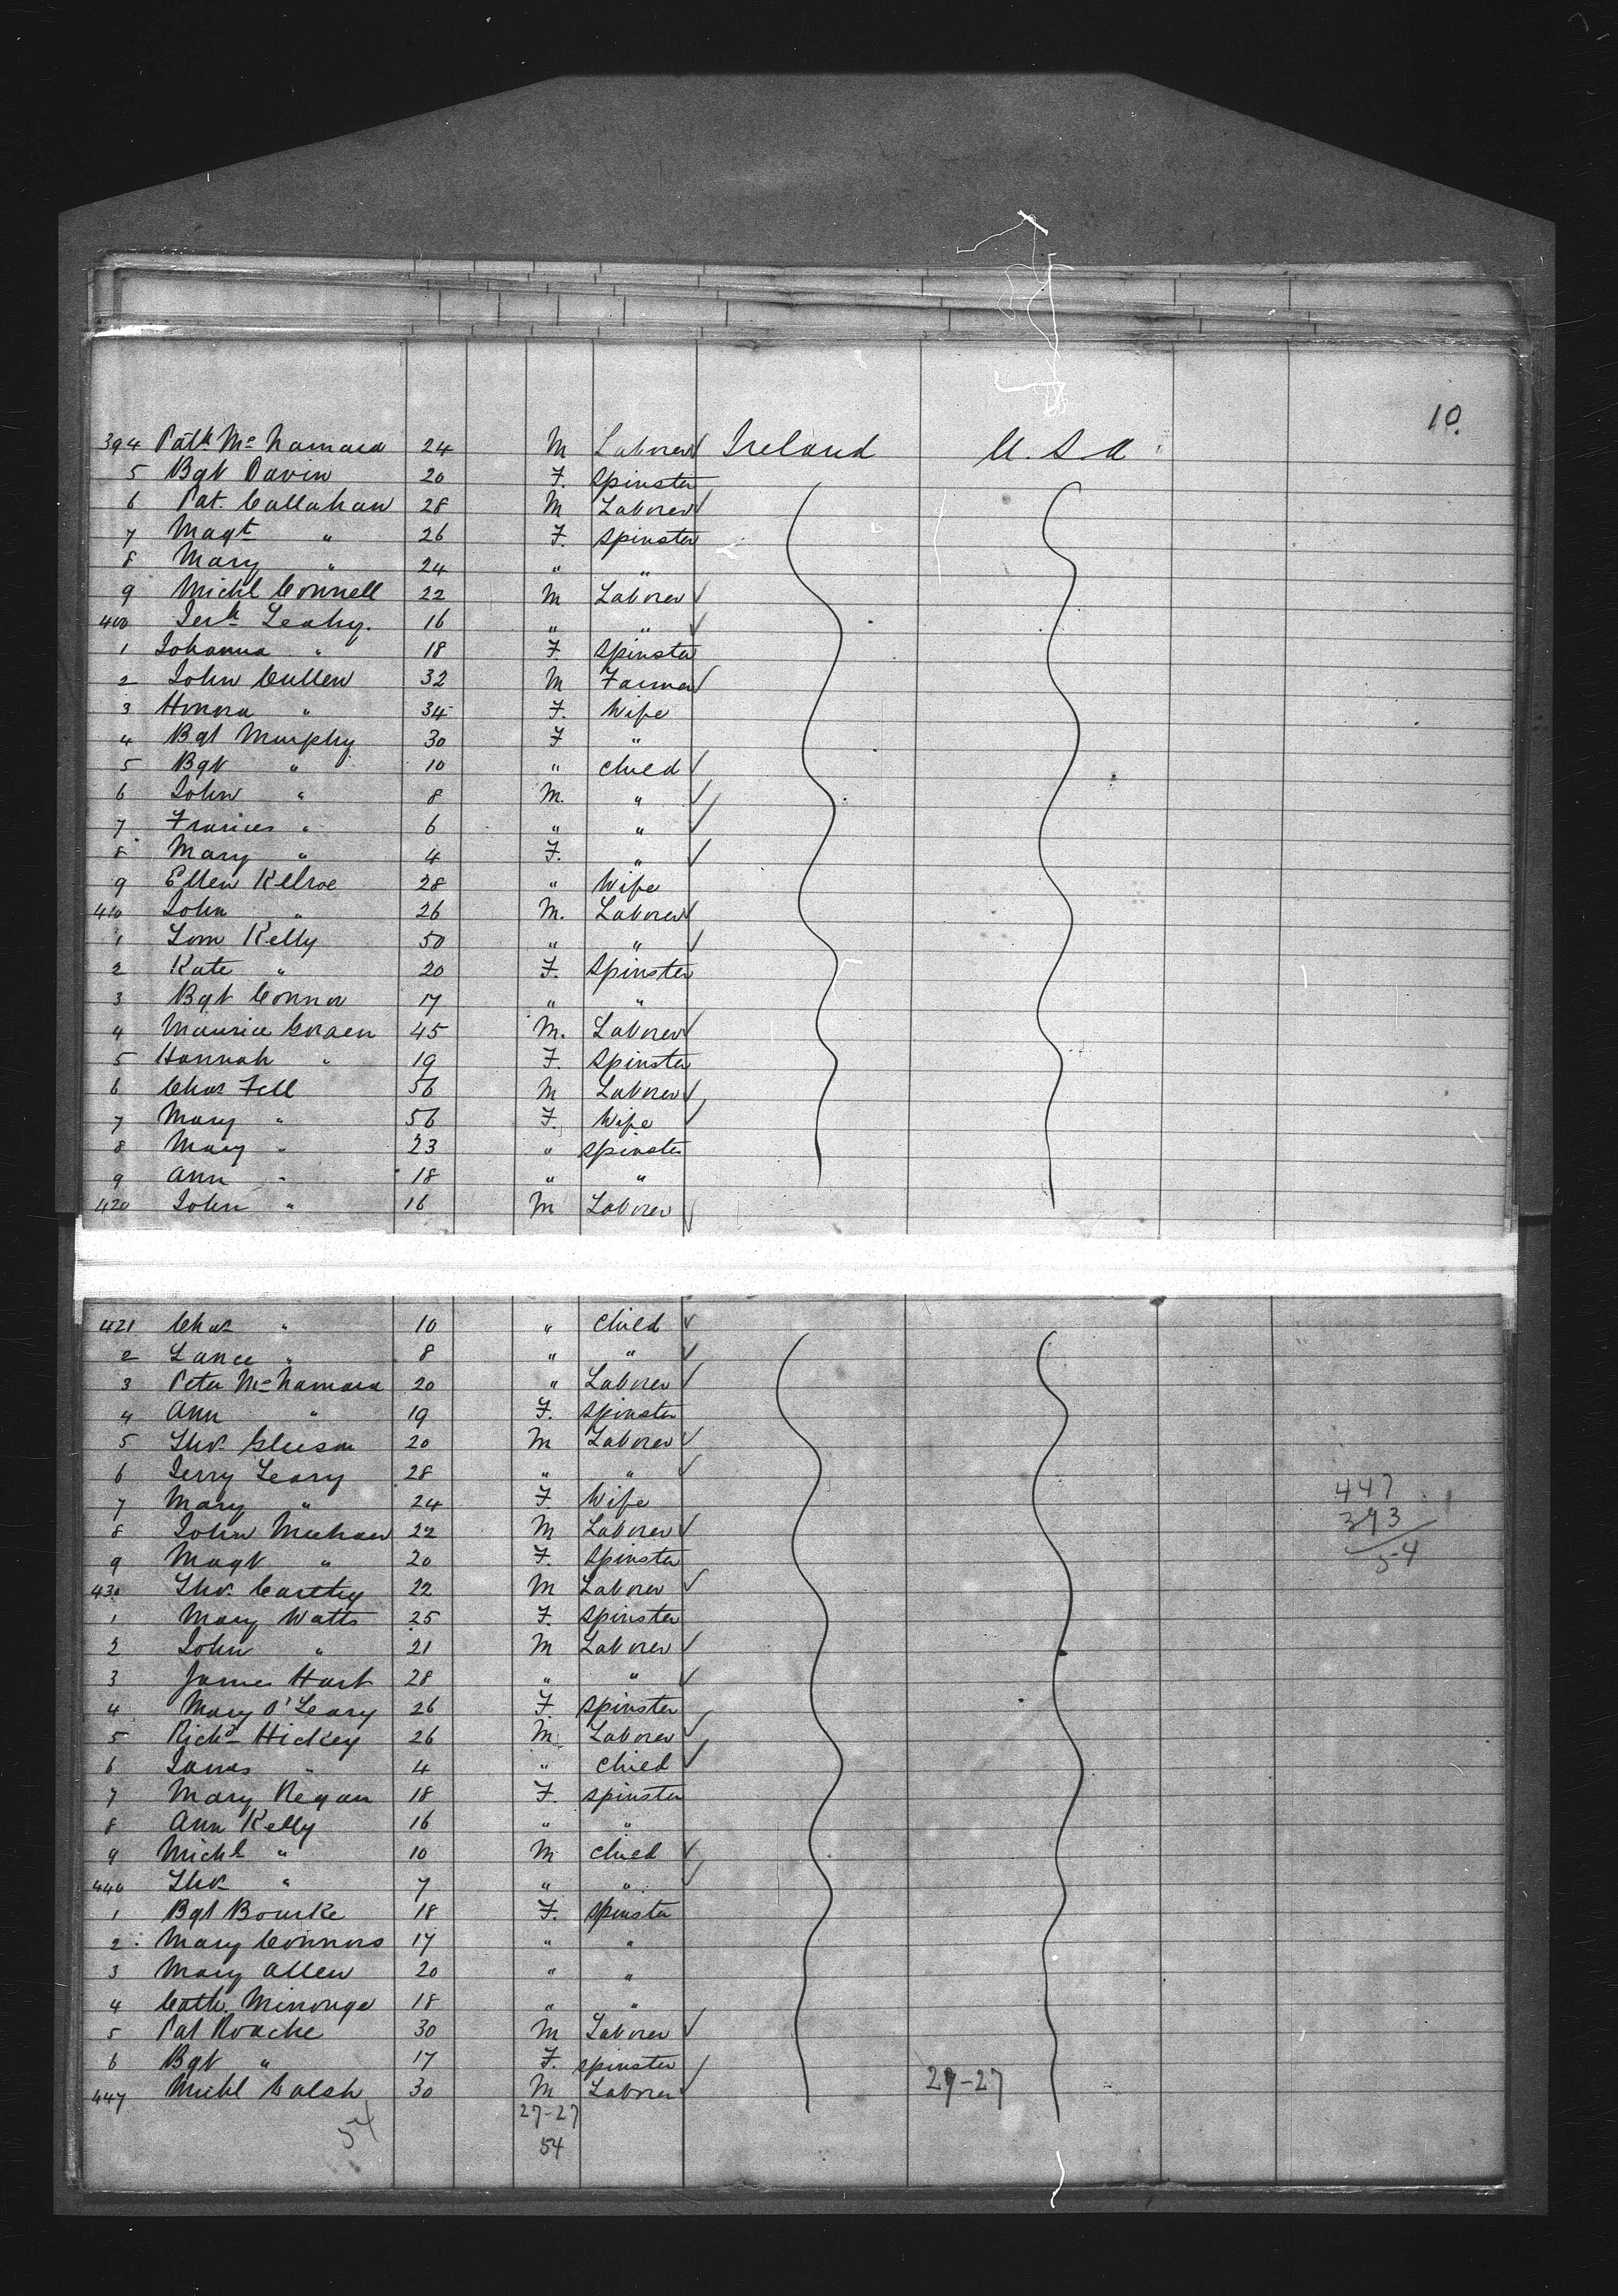 10.
394 Patk McNamara 24 M Laborer ✓ Ireland U.S.A
5 Bgt Davin 20 F. Spinster
6 Pat. Callahan 28 M Laborer ✓
7 Magt " 26 F. Spinster
8 Mary " 24 " "
9 Michl Connell 22 M Laborer ✓
400 Jerh Leahy. 16 " " ✓
1 Johanna " 18 F. Spinster
2 John Cullen 32 M Farmer ✓
3 Honora " 34 F. Wife
4 Bgt Murphy 30 F "
5 Bgt " 10 " Child ✓
6 John " 8 M. " ✓
7 Frances " 6 " " ✓
8 Mary " 4 F. " ✓
9 Ellen Kelroe 28 " Wife
410 John " 26 M. Laborer ✓
1 Tom Kelly 50 " " ✓
2 Kate " 20 F. Spinster
3 Bgt Connor 17 " "
4 Maurice 45 M. Laborer ✓
5 Hannah " 19 F. Spinster
6 Chas Fell 56 M Laborer ✓
7 Mary " 56 F. Wife ✓
8 Mary " 23 " Spinster
9 Ann " 18 " "
420 John " 16 M Laborer ✓
421 Chas " 10 " Child ✓
2 Lance " 8 " " ✓
3 Peter McNamara 20 " Laborer ✓
4 Ann " 19 F. Spinster
5 Thos Gleeson 20 M Laborer ✓
6 Jerry Leary 28 " " ✓
7 Mary " 24 F. Wife
8 John Meehan 22 M Laborer ✓
9 Magt " 20 F. Spinster
430 Thos. Carthy 22 M Laborer ✓
1 Mary Watts 25 F. Spinster
2 John " 21 M Laborer ✓
3 James Hart 28 " " ✓
4 Mary O'Leary 26 F. Spinster
5 Richd Hickey 26 M. Laborer ✓
6 James " 4 " Child ✓
7 Mary Regan 18 F. Spinster
8 Ann Kelly 16 " "
9 Michl " 10 M Child ✓
440 Thos " 7 " " ✓
1 Bgt Bourke 18 F. Spinster
2 Mary Connors 17 " "
3 Mary Allen 20 " "
4 Cath. Minonge 18 " "
5 Pat Roache 30 M Laborer ✓
6 Bgt " 17 F. Spinster
447 Michl Walsh 30 M Laborer ✓
447
393
54
27-27
27-27
54
54